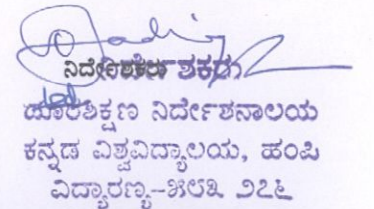 ನಿರ್ದೇಶಕರು
ದೂರಶಿಕ್ಷಣ ನಿರ್ದೇಶನಾಲಯ
ಕನ್ನಡ ವಿಶ್ವವಿದ್ಯಾಲಯ, ಹಂಪಿ
ವಿದ್ಯಾರಣ್ಯ-೫೮೩ ೨೭೬